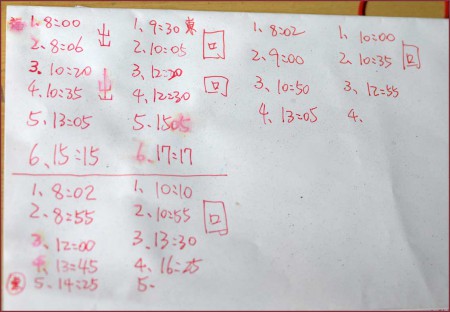 1、8=00 出 1、9=30 東 1、8=02 1、10=00
2、8=06 2、10=05 回 2、9=00 2、10=35 回
3、10=20 出 3、12=20 回 3、10=50 3、12=55
4、10=35 4、12=30 4、13=05 4、
5、13=05 5、1505
6、15=15 6、17=17
1、8=02 1、10=10
2、8=55 2、10=55 回
3、12=00 3、13=30
4、13=45 4、16=25
5、14=25 5、